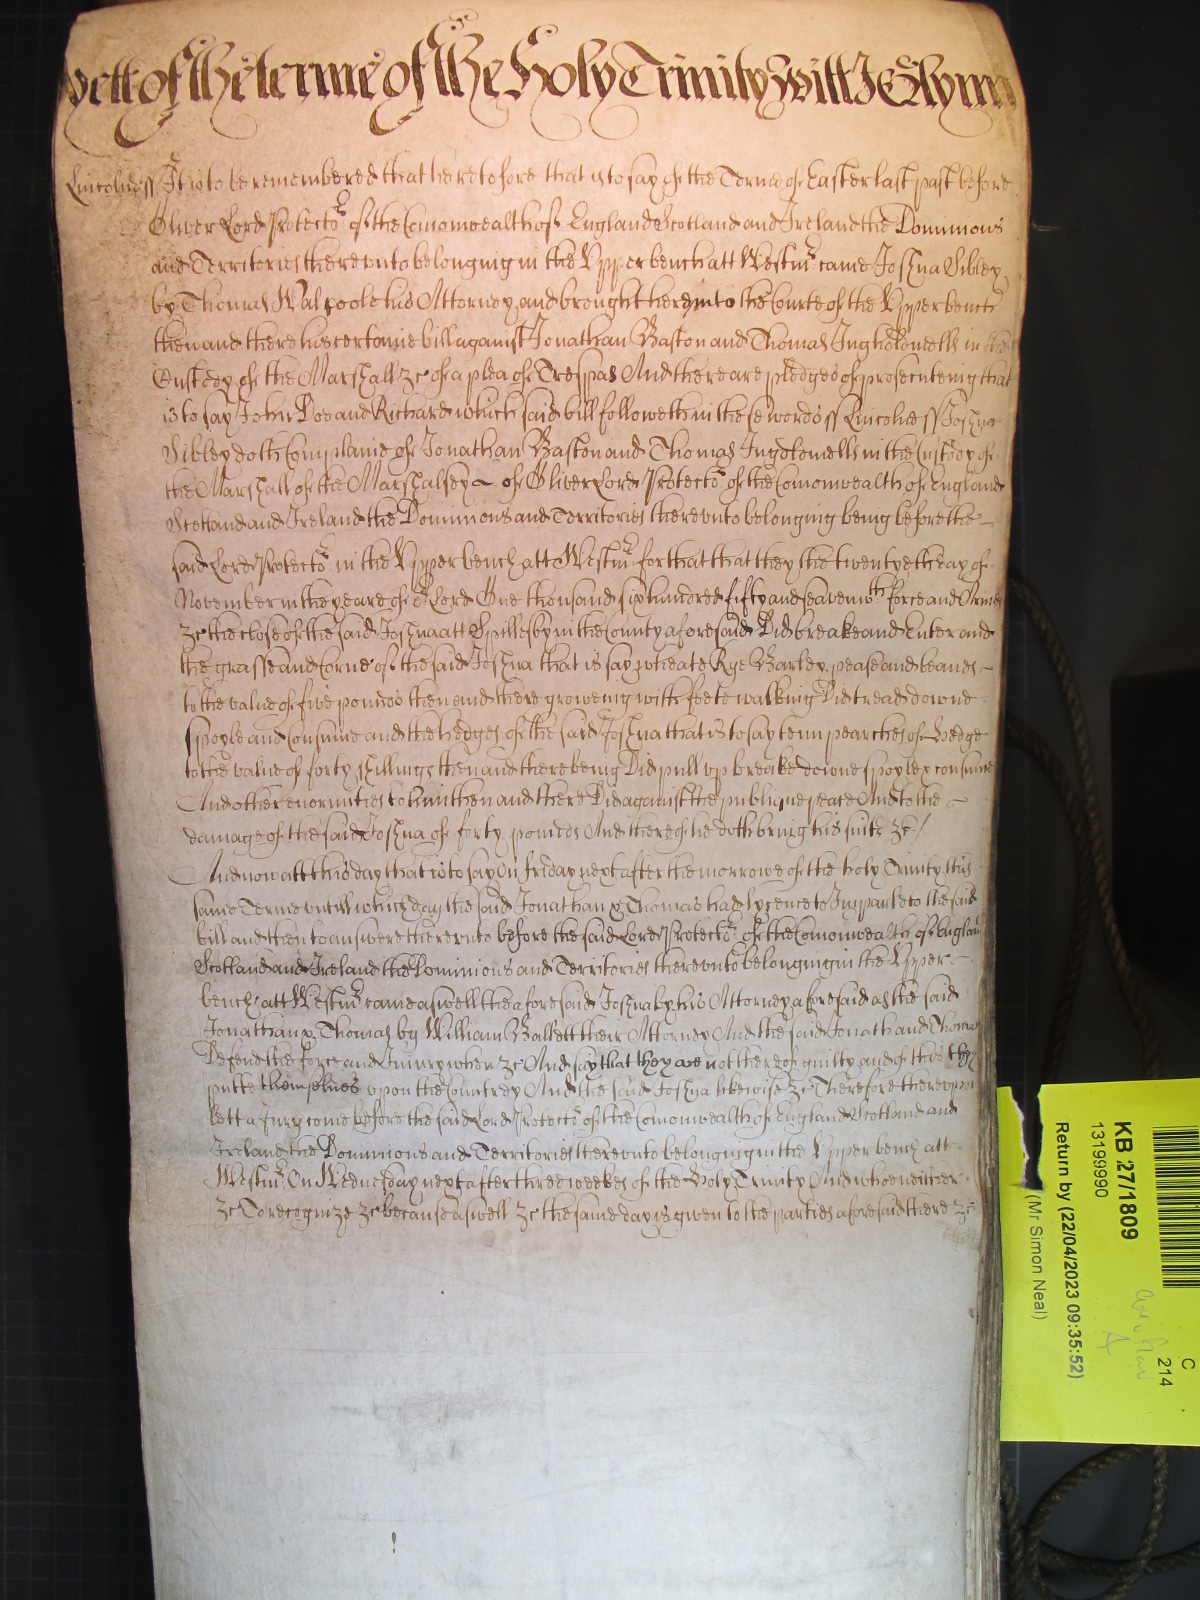 yett of the terme of the Holy Trinity Witt J Glynn
Lincolne ss It is to be remembered that heretofore that is to say of the Terme of Easter last past before
Oliver Lord Protector of the Comonwealth of England Scotland and Ireland the Dominions
and Territories thereunto belonging in the Upper bench att Westmr came Joshua Sibley
by Thomas Walpoole his Attorney and brought here into the Courte of the Upper bench
then and there his certaine bill against Jonathan Baston and Thomas Ingholdmells in the
Custody of the Marshall &c of a plea of Trespas And there are pledges of prosecuteing that
is to say John Doe and Richard which said bill followeth in these words ss Lincolne ss Joshua
Sibley doth Complaine of Jonathan Baston and Thomas Ingolemells in the Custody of
the Marshall of the Marshalsey of Oliver Lord Protector of the Comonwealth of England
Scotland and Ireland the Dominions and Territories thereunto belonging being before the
said Lord Protector in the Upper bench att Westmr for that that they the twentyeth day of
November in the yeare of or Lord One thousand six hundred fifty and seaven wth force and Armes
&c the close of the said Joshua att Spillesby in the County aforesaid Did breake and Enter and
the grasse and Corne of the said Joshua that is say wheate Rye Barley pease and beanes
to the value of five pounds then and there groweing with feete walking Did tread downe
spoyle and Consume and the hedges of the said Joshua that is to say tenn pearches of hedge
to the value of forty shillings then and there being Did pull up breake downe spoyle & consume
And other enormities to him then and there Did against the publique peace And to the
damage of the said Joshua of forty pounds And thereof he doth bring his suite &c /
And now att this day that is to say On friday next after the morrowe of the holy Trinity this
same Terme untill which day the said Jonathan & Thomas had lycence to Imparle to the said
bill and then to answere thereunto before the said Lord Protector of the Comonwealth of England
Scotland and Ireland the Dominions and Territories thereunto belonging in the Upper
bench att Westmr came aswell the aforesaid Joshua by his Attorney aforesaid as the said
Jonathan & Thomas by William Ballett their Attorney And the said Jonath and Thomas
Defend the force and Iniury when &c And say that they are not thereof guilty and of this they
putte themselves upon the Countrey And the said Joshua likewise &c Therefore thereupon
Lett a Jury come before the said Lord Protector of the Comonwealth of England Scotland and
Ireland the Dominions and Territories thereunto belonging in the Upper bench att
Westmr On Wednesday next after three weekes of the Holy Trinity And who neither
&c To recognize &c because aswell &c the same day is given to the parties aforesaid there &c
C
214
KB 27/1809
13199990
Return by (22/04/2023 09:35:52)
(Mr Simon Neal)